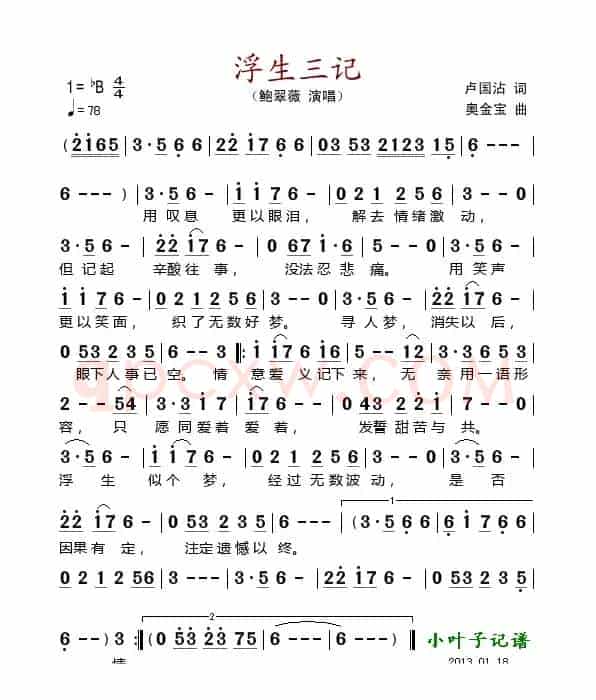 浮生三记
1=♭B 4/4 （鲍翠薇 演唱） 卢国沾 词
♩=78 奥金宝 曲
(2i65 | 3·5 6 - | 22 i76 - | 03 53 2123 15 | 6 - - - |
6 - - ) | 3·5 6 - | i i 7 6 - | 0 2 1 2 5 6 | 3 - - - |
用 叹息 更以眼泪， 解去 情绪激 动，
3·5 6 - | 22 i76 - | 0 67 i·6 | 5 - - 0 | 3·5 6 - |
但 记起 辛酸往 事， 没法忍 悲 痛。 用 笑声
i i 7 6 - | 0 2 1 2 5 6 | 3 - - - | 3·5 6 - | 22 i76 - |
更以笑面， 织了无数好 梦。 寻 人梦， 消失以 后，
0 53 2 3 5 | 6 - - 3 |: i i76 i6 | 5 - - 12 | 3·3 6 5 3 |
眼下人事已 空。 情 意爱 义记下 来， 无 亲用一语形
2 - - 54 | 3·3 i i | 7 - - 0 | 0 43 2 2 1 | 7 - - - |
容， 只 愿同爱着 爱 着， 发誓 甜苦与 共。
3·5 6 - | i i 7 6 - | 0 2 1 2 5 6 | 3 - - - | 3·5 6 - |
浮 生 似个 梦， 经过 无数波 动， 是 否
22 i76 - | 0 53 2 3 5 | 6 - - - | (3·5 6 6 | i 7 6 - |
1
因果有 定， 注定遗憾以 终。
0 2 1 2 56 | 3 - - - | 3·5 6 - | 22 i76 - | 0 53 2 35 |
6 - ) 3 :| (0 53 23 75 | 6 - - - | 6 - - - ) ‖ 小叶子记谱
2
情 2013.01.18
qpcxw.com